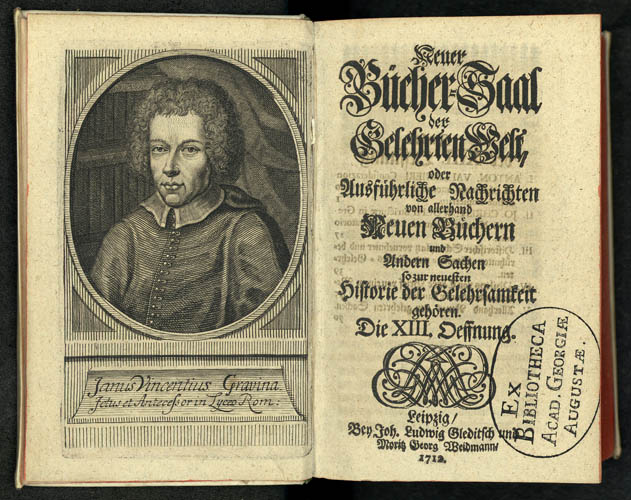 Janus Vincentius Gravina
Jctus et Antecessor in Lyceo Rom:
Neuer
Bücher-Saal
der
Gelehrten Welt,
oder
Ausführliche Nachrichten
von allerhand
Neuen Büchern
und
Andern Sachen
so zur neuesten
Historie der Gelehrsamkeit
gehören.
Die XIII. Oeffnung.
Leipzig/
Bey Joh. Ludwig Gleditsch und
Moritz Georg Weidmann/
1712.
EX
BIBLIOTHECA
ACAD. GEORGIÆ
AUGUSTÆ.